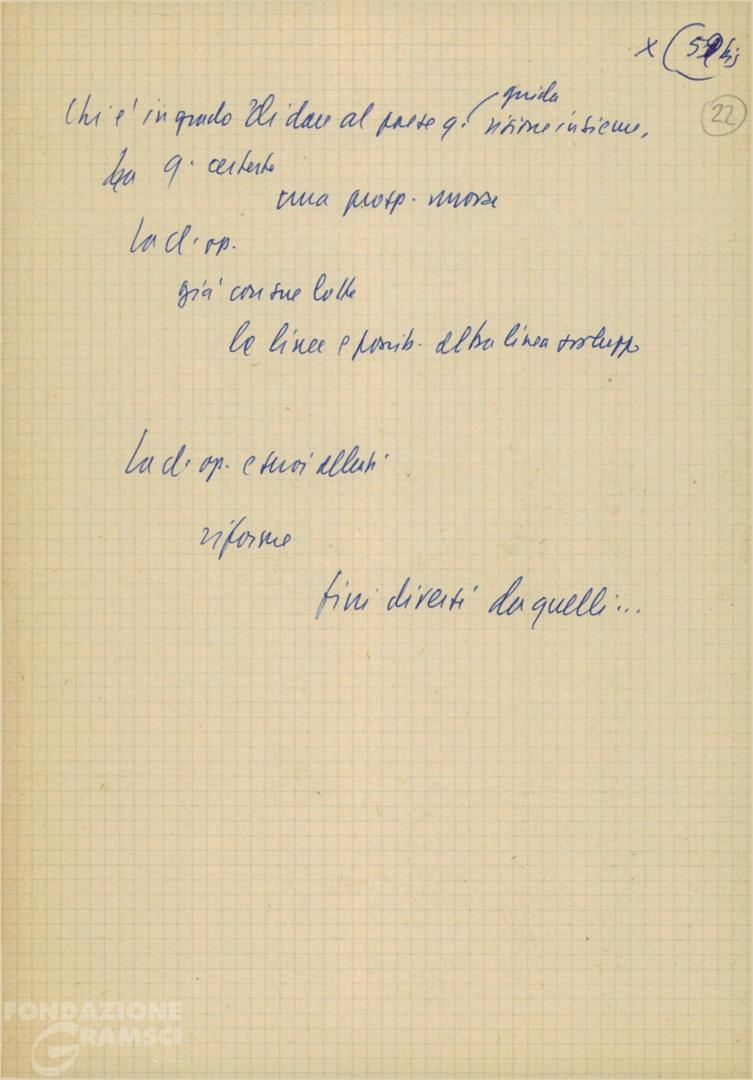 x (59 bis
22
guida
Chi è in grado di dare al paese q. visione insieme,
q. certezze
una prosp. nuova
La cl. op.
già con sue lotte
le linee e possib. altra linea sviluppo
La cl. op. e suoi alleati
riforme
fini diversi da quelli...
FONDAZIONE
GRAMSCI